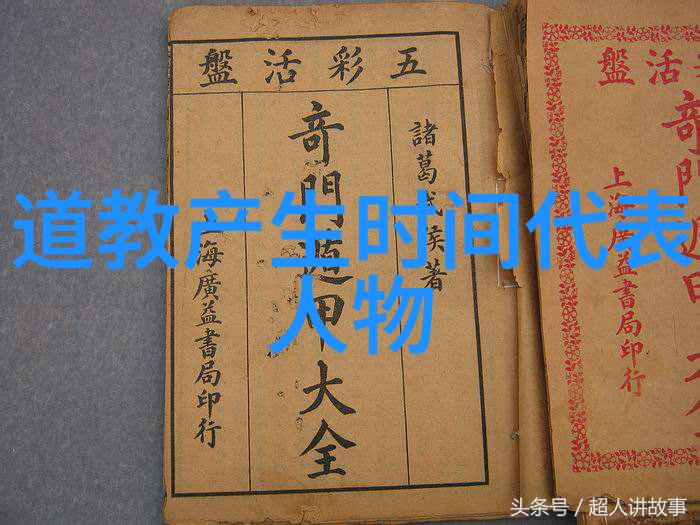 道教产生时间代表
人物
五彩活盤
諸葛武侯著
竒門遁甲大全
上海廣益書局印行
活盤
竒門遁甲
上海廣益書局印行
头条号 / 超人讲故事